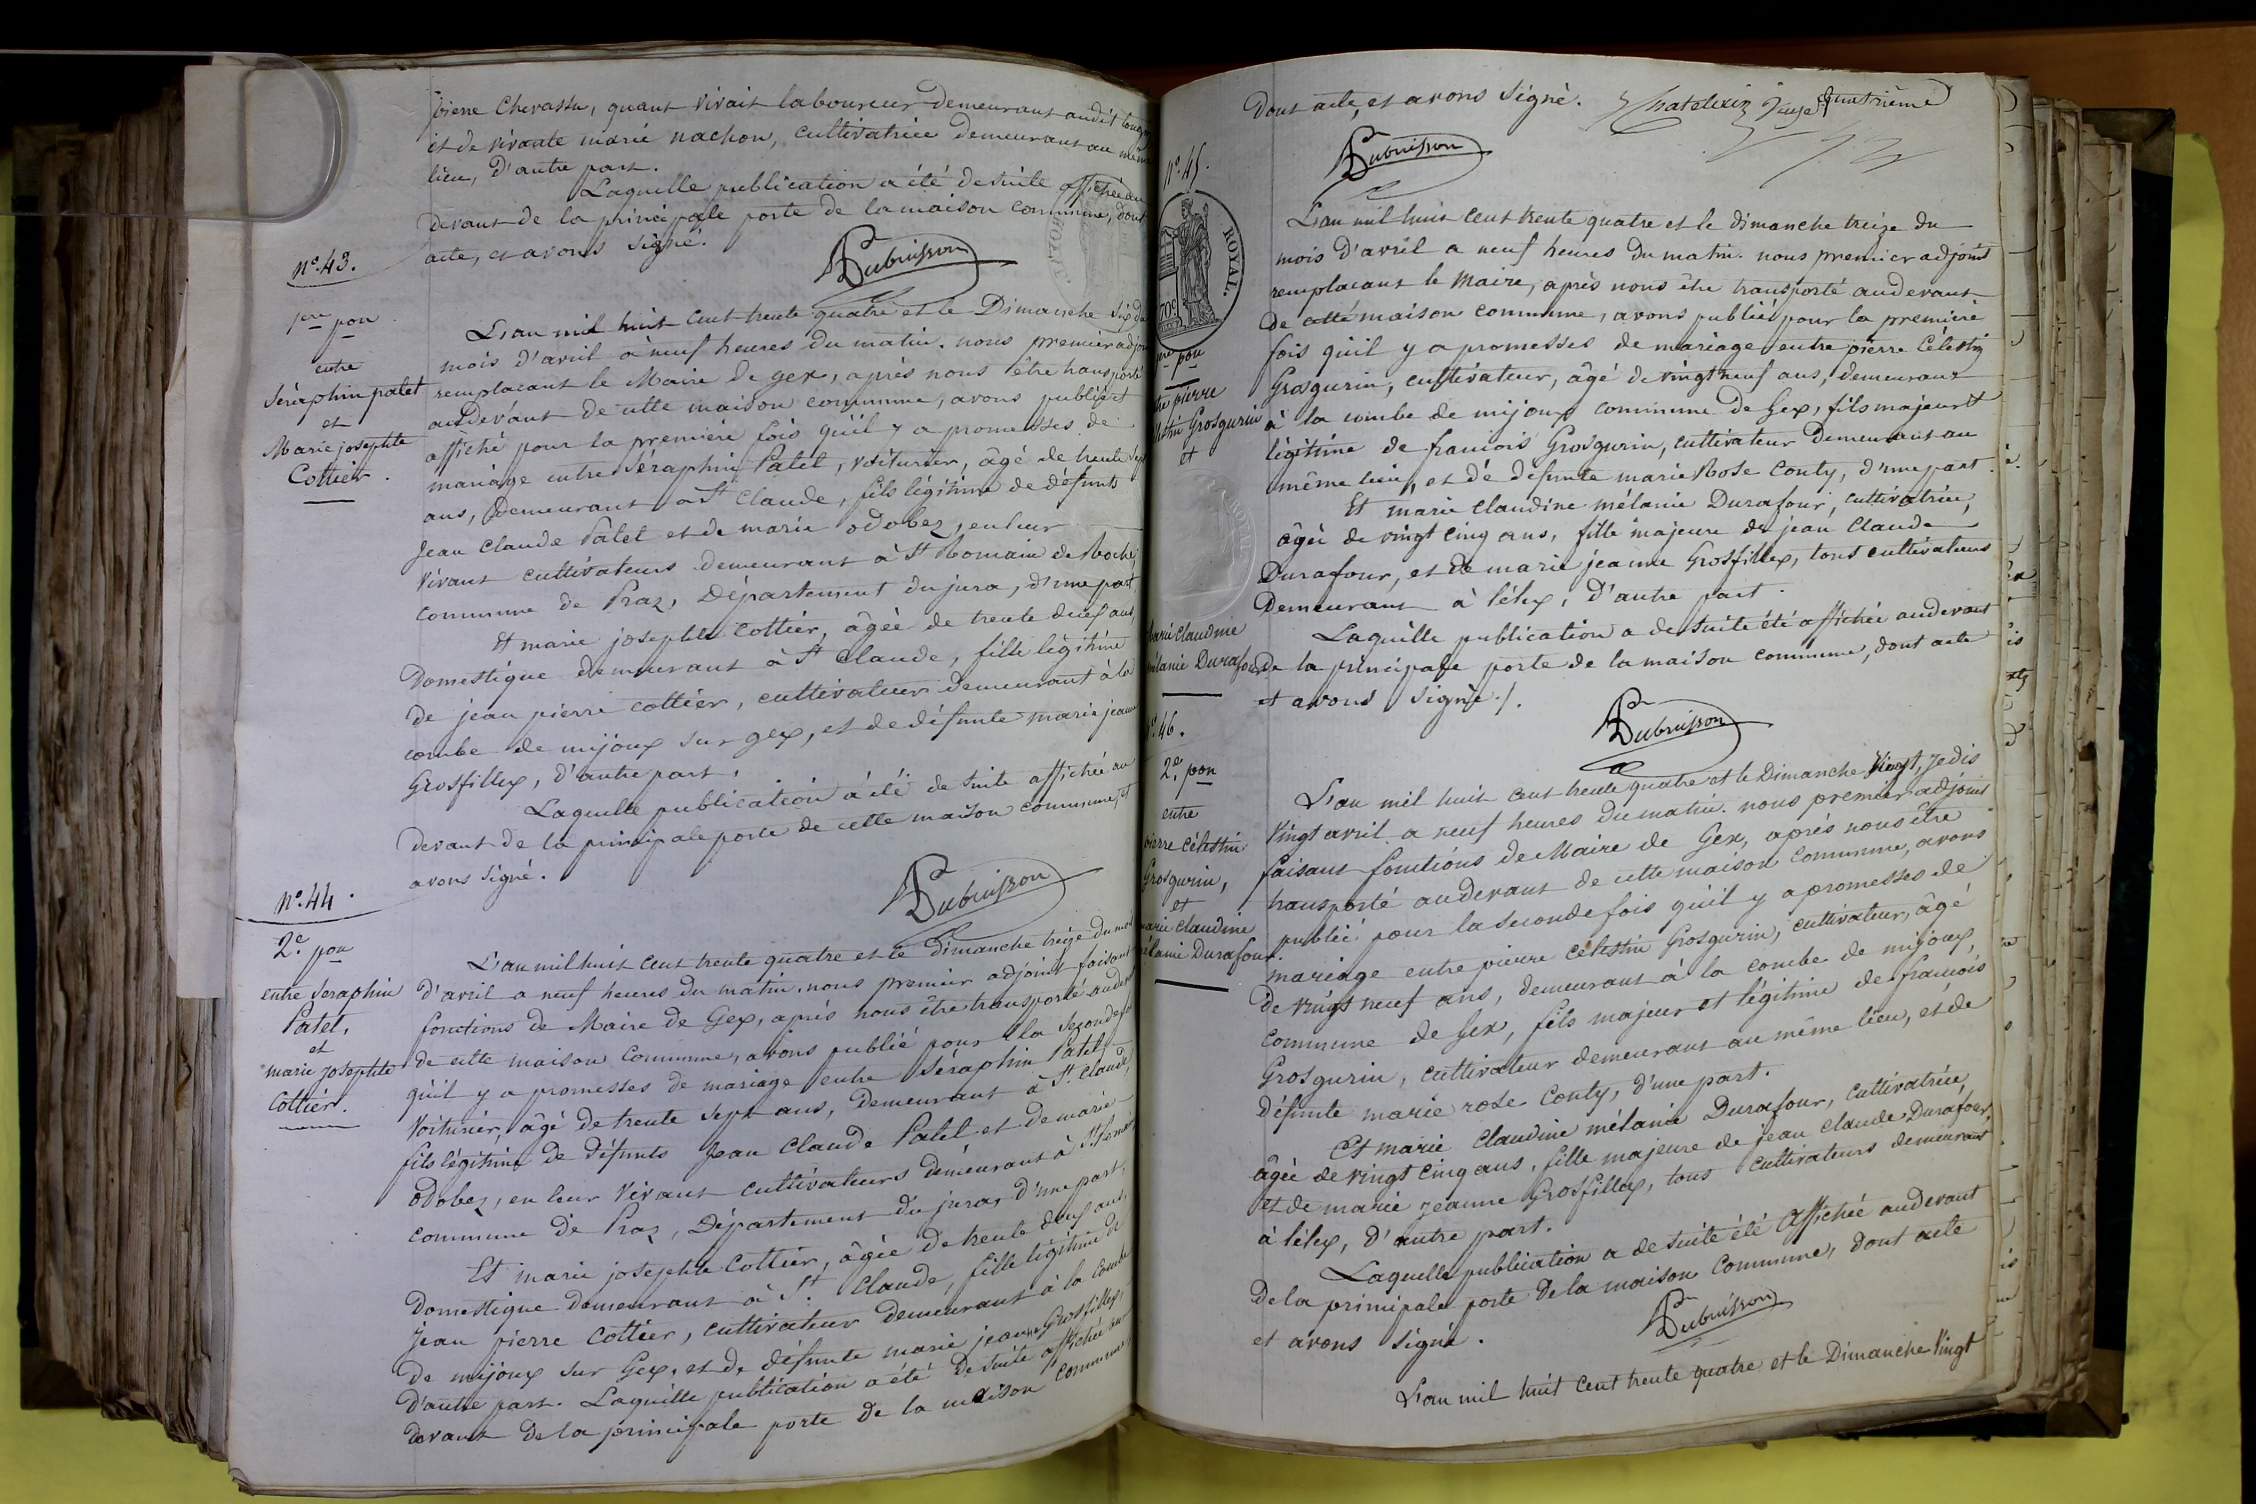 pierre Chevassu, quant vivait laboureur demeurant audit
et de vivante marie nachon, cultivatrice demeurant au même
lieu, d'autre part.
Laquelle publication a été de suite affichée au
devant de la principale porte de la maison commune, dont
acte, et avons signé.
Dubuisson
N.º 43.
1ere pon
entre
Séraphin patet
et
Marie josephte
Cottier.
L'an mil huit cent trente quatre et le Dimanche six du
mois d'avril à neuf heures du matin. nous premier adjoint
remplacant le Maire de gex, après nous être transporté
audevant de cette maison commune, avons publié et
affiché pour la première fois qu'il y a promesses de
mariage entre Séraphin Patet, voiturier, âgé de trente sept
ans, demeurant à St Claude, fils légitime de défunts
Jean Claude Patet et de marie odobez, en leur
vivant cultivateurs demeurant à St Romain de Roche,
commune de Praz, Département du jura, d'une part.
Et marie josephte Cottier, âgée de trente deux ans
Domestique demeurant à St Claude, fille légitime
de jean pierre cottier, cultivateur demeurant à la
combe de mijoux sur gex, et de défunte marie jeanne
Grosfillex, d'autre part.
Laquelle publication a été de suite affichée au
devant de la principale porte de cette maison commune, et
avons signé.
Dubuisson
N.º 44.
2e. pon
entre Seraphin
Patet,
et
marie josephte
Cottier.
L'an mil huit cent trente quatre et le dimanche treize du mois
d'avril a neuf heures du matin. nous premier adjoint faisant
fonctions de Maire de Gex, après nous être transporté audevant
de cette maison commune, avons publié pour la seconde fois
qu'il y a promesses de mariage entre Séraphin Patet,
Voiturier, âgé de trente sept ans, demeurant à St. Claude,
fils légitime de défunts Jean Claude Patet et de marie
odobez, en leur vivant cultivateurs demeurant à St Romain
commune de Praz, Département du jura, d'une part.
Et marie josephte Cottier, âgée de trente deux ans,
Domestique demeurant à St. Claude, fille légitime de
jean pierre Cottier, cultivateur demeurant à la combe
de mijoux sur Gex, et de défunte marie jeanne Grosfillex,
d'autre part. Laquelle publication a été de suite affichée au
devant de la principale porte de la maison commune
Dont acte, et avons signé.
Dubuisson
quatrième
N.º 45.
ROYAL.
70c
pon
pierre
Grosgurin
et
marie claudine
mélanie Durafour
L'an mil huit cent trente quatre et le dimanche treize du
mois d'avril a neuf heures du matin. nous premier adjoint
remplacant le Maire, après nous être transporté audevant
de cette maison commune, avons publié pour la première
fois qu'il y a promesses de mariage entre pierre Célestin
Grosgurin, cultivateur, âgé de vingt neuf ans, demeurant
à la combe de mijoux commune de Gex, fils majeur et
légitime de francois Grosgurin, cultivateur demeurant au
même lieu, et de défunte marie Rose Conty, d'une part.
Et marie claudine mélanie Durafour, cultivatrice,
âgée de vingt cinq ans, fille majeure de jean Claude
Durafour, et de marie jeanne Grosfillex, tous cultivateurs
demeurant à lélex, d'autre part.
Laquelle publication a de suite été affichée audevant
de la principale porte de la maison commune, dont acte
et avons signé ./.
Dubuisson
46.
2e. pon
entre
pierre célestin
Grosgurin,
et
marie claudine
mélanie Durafour
L'an mil huit cent trente quatre et le Dimanche vingt, je dis
vingt avril a neuf heures du matin. nous premier adjoint
faisant fonctions de Maire de Gex, après nous être
transporté audevant de cette maison commune, avons
publié pour la seconde fois qu'il y a promesses de
mariage entre pierre célestin Grosgurin, cultivateur, âgé
de vingt neuf ans, demeurant à la combe de mijoux,
commune de Gex, fils majeur et légitime de francois
Grosgurin, cultivateur demeurant au même lieu, et de
défunte marie rose Conty, d'une part.
Et marie claudine mélanie Durafour, cultivatrice,
âgée de vingt cinq ans, fille majeure de jean claude Durafour,
et de marie jeanne Grosfillex, tous cultivateurs demeurant
à lélex, d'autre part.
Laquelle publication a de suite été affichée audevant
de la principale porte de la maison commune, dont acte
et avons signé.
Dubuisson
L'an mil huit cent trente quatre et le Dimanche vingt